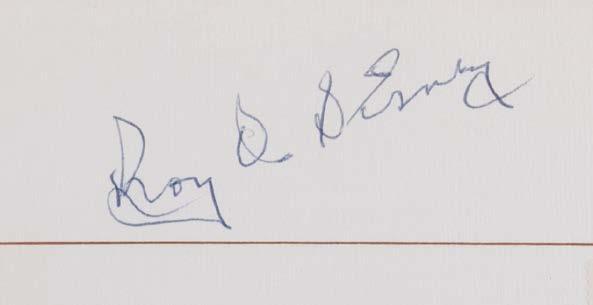 Roy O Disney